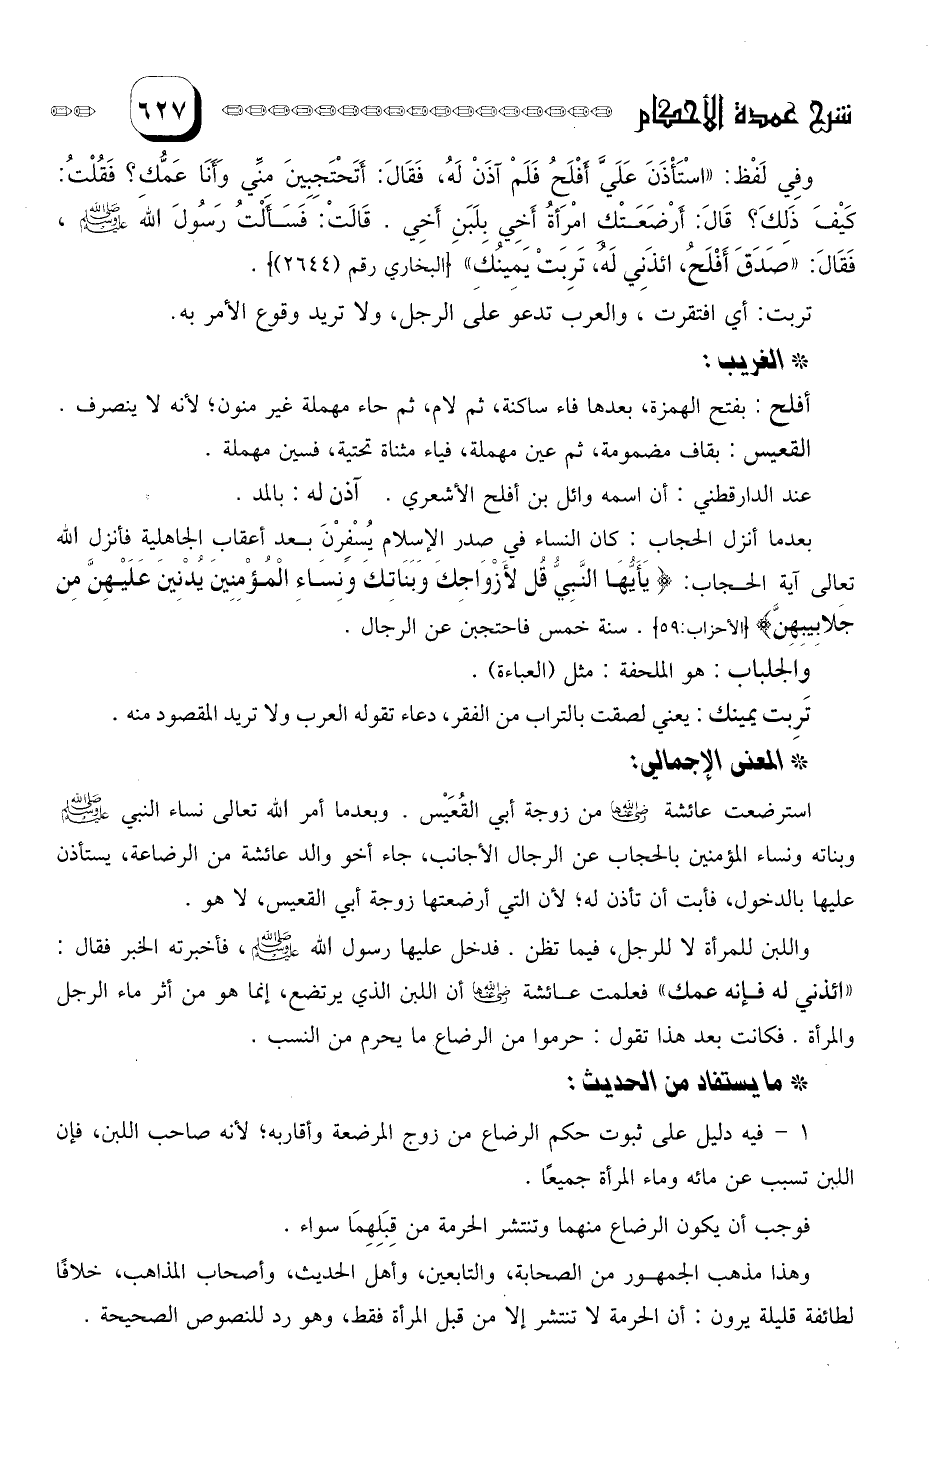 شرح عمدة الأحكام ٦٢٧
وفي لَفْظ: «اسْتَأْذَنَ عَلَيَّ أَفْلَحُ فَلَمْ آذَنْ لَهُ، فَقَالَ: أَتَحْتَجِبِينَ مِنِّي وَأَنَا عَمُّك؟ فَقُلْتُ:
كَيْفَ ذَلِكَ؟ قَالَ: أَرْضَعَتْك امْرَأَةُ أَخِي بِلَبَنِ أَخِي . قَالَتْ: فَسَأَلْتُ رَسُولَ الله ﷺ ،
فَقَالَ: «صَدَقَ أَفْلَحُ، ائذَنِي لَهُ، تَرِبَتْ يَمِينُك» {البخاري رقم (٢٦٤٤)} .
تربت: أي افتقرت ، والعرب تدعو على الرجل، ولا تريد وقوع الأمر به.
* الغريب :
أفلح : بفتح الهمزة، بعدها فاء ساكنة، ثم لام، ثم حاء مهملة غير منون؛ لأنه لا ينصرف .
القعيس : بقاف مضمومة، ثم عين مهملة، فياء مثناة تحتية، فسين مهملة .
عند الدارقطني : أن اسمه وائل بن أفلح الأشعري . آذن له : بالمد .
بعدما أنزل الحجاب : كان النساء في صدر الإسلام يُسْفِرْنَ بـعد أعقاب الجاهلية فأنزل الله
تعالى آية الحـجاب: ﴿ يَأَيُّهَا النَّبِيُّ قُل لأَزْوَاجِكَ وَبَنَاتِكَ وَنِسَاءِ الْمُؤْمِنِينَ يُدْنِينَ عَلَيْهِنَّ مِن
جَلابِيبِهِنَّ﴾ {الأحزاب:٥٩} . سنة خمس فاحتجبن عن الرجال .
والجلباب : هو الملحفة : مثل (العباءة) .
تَرِبت يمينك : يعني لصقت بالتراب من الفقر، دعاء تقوله العرب ولا تريد المقصود منه .
* المعنى الإجمالي:
استرضعت عائشة رضي الله عنها من زوجة أبي القُعَيْس . وبعدما أمر الله تعالى نساء النبي ﷺ
وبناته ونساء المؤمنين بالحجاب عن الرجال الأجانب، جاء أخو والد عائشة من الرضاعة، يستأذن
عليها بالدخول، فأبت أن تأذن له؛ لأن التي أرضعتها زوجة أبي القعيس، لا هو .
واللبن للمرأة لا للرجل، فيما تظن . فدخل عليها رسول الله ﷺ ، فأخبرته الخبر فقال :
«ائذني له فـإنه عمك» فعلمت عـائشة رضي الله عنها أن اللبن الذي يرتضع، إنما هو من أثر ماء الرجل
والمرأة . فكانت بعد هذا تقول : حرموا من الرضاع ما يحرم من النسب .
* ما يستفاد من الحديث :
١ - فيه دليل على ثبوت حكم الرضاع من زوج المرضعة وأقاربه؛ لأنه صاحب اللبن، فإن
اللبن تسبب عن مائه وماء المرأة جميعًا .
فوجب أن يكون الرضاع منهما وتنتشر الحرمة من قِبَلِهِمَا سواء .
وهذا مذهب الجمهـور من الصحابة، والتابعين، وأهل الحديث، وأصحاب المذاهب، خلافًا
لطائفة قليلة يرون : أن الحرمة لا تنتشر إلا من قبل المرأة فقط، وهو رد للنصوص الصحيحة .